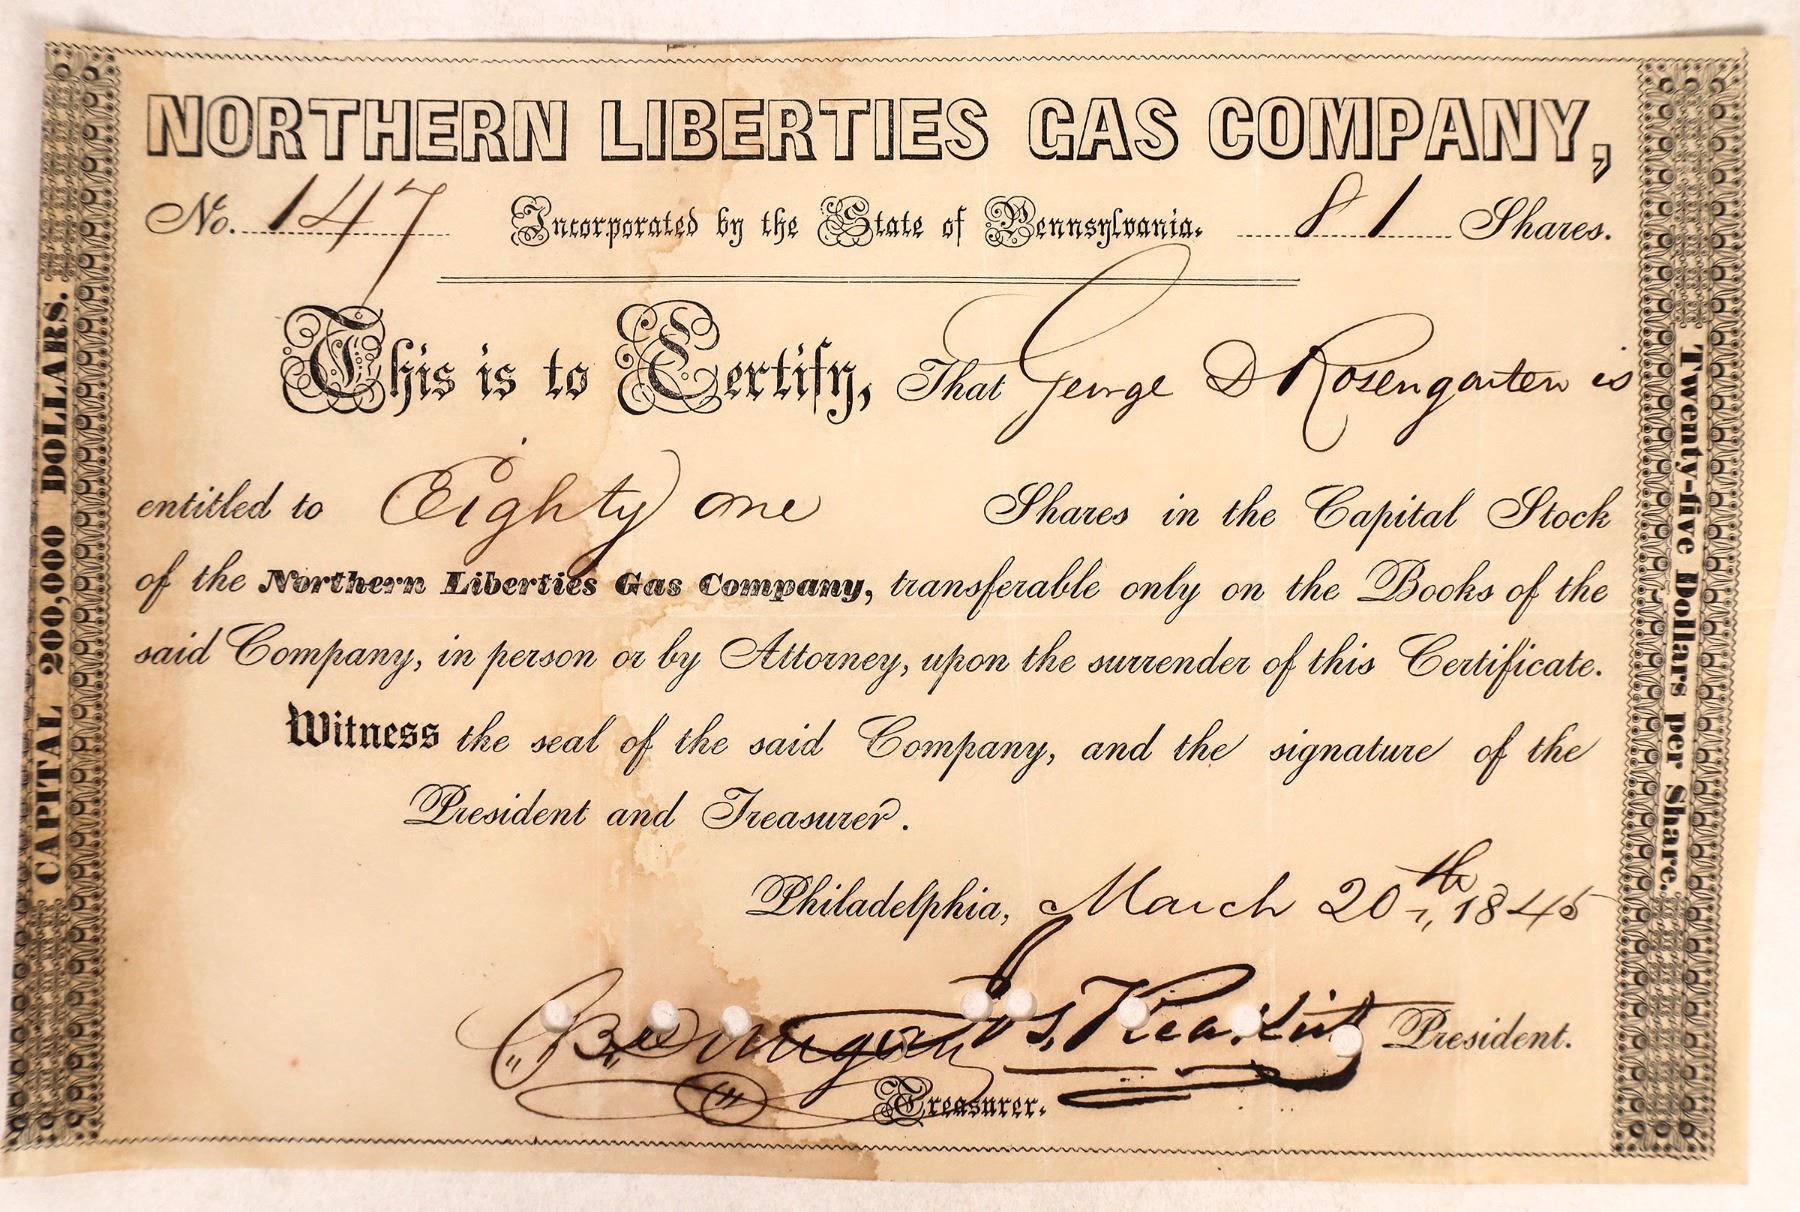 NORTHERN LIBERTIES GAS COMPANY,
No. 147 Incorporated by the State of Pennsylvania. 81 Shares.
This is to Certify, That George D Rosengarten is
entitled to Eighty one Shares in the Capital Stock
of the Northern Liberties Gas Company, transferable only on the Books of the
said Company, in person or by Attorney, upon the surrender of this Certificate.
Witness the seal of the said Company, and the signature of the
President and Treasurer.
Philadelphia, March 20th, 1845
President.
Treasurer.
CAPITAL 200,000 DOLLARS.
Twenty-five Dollars per Share.